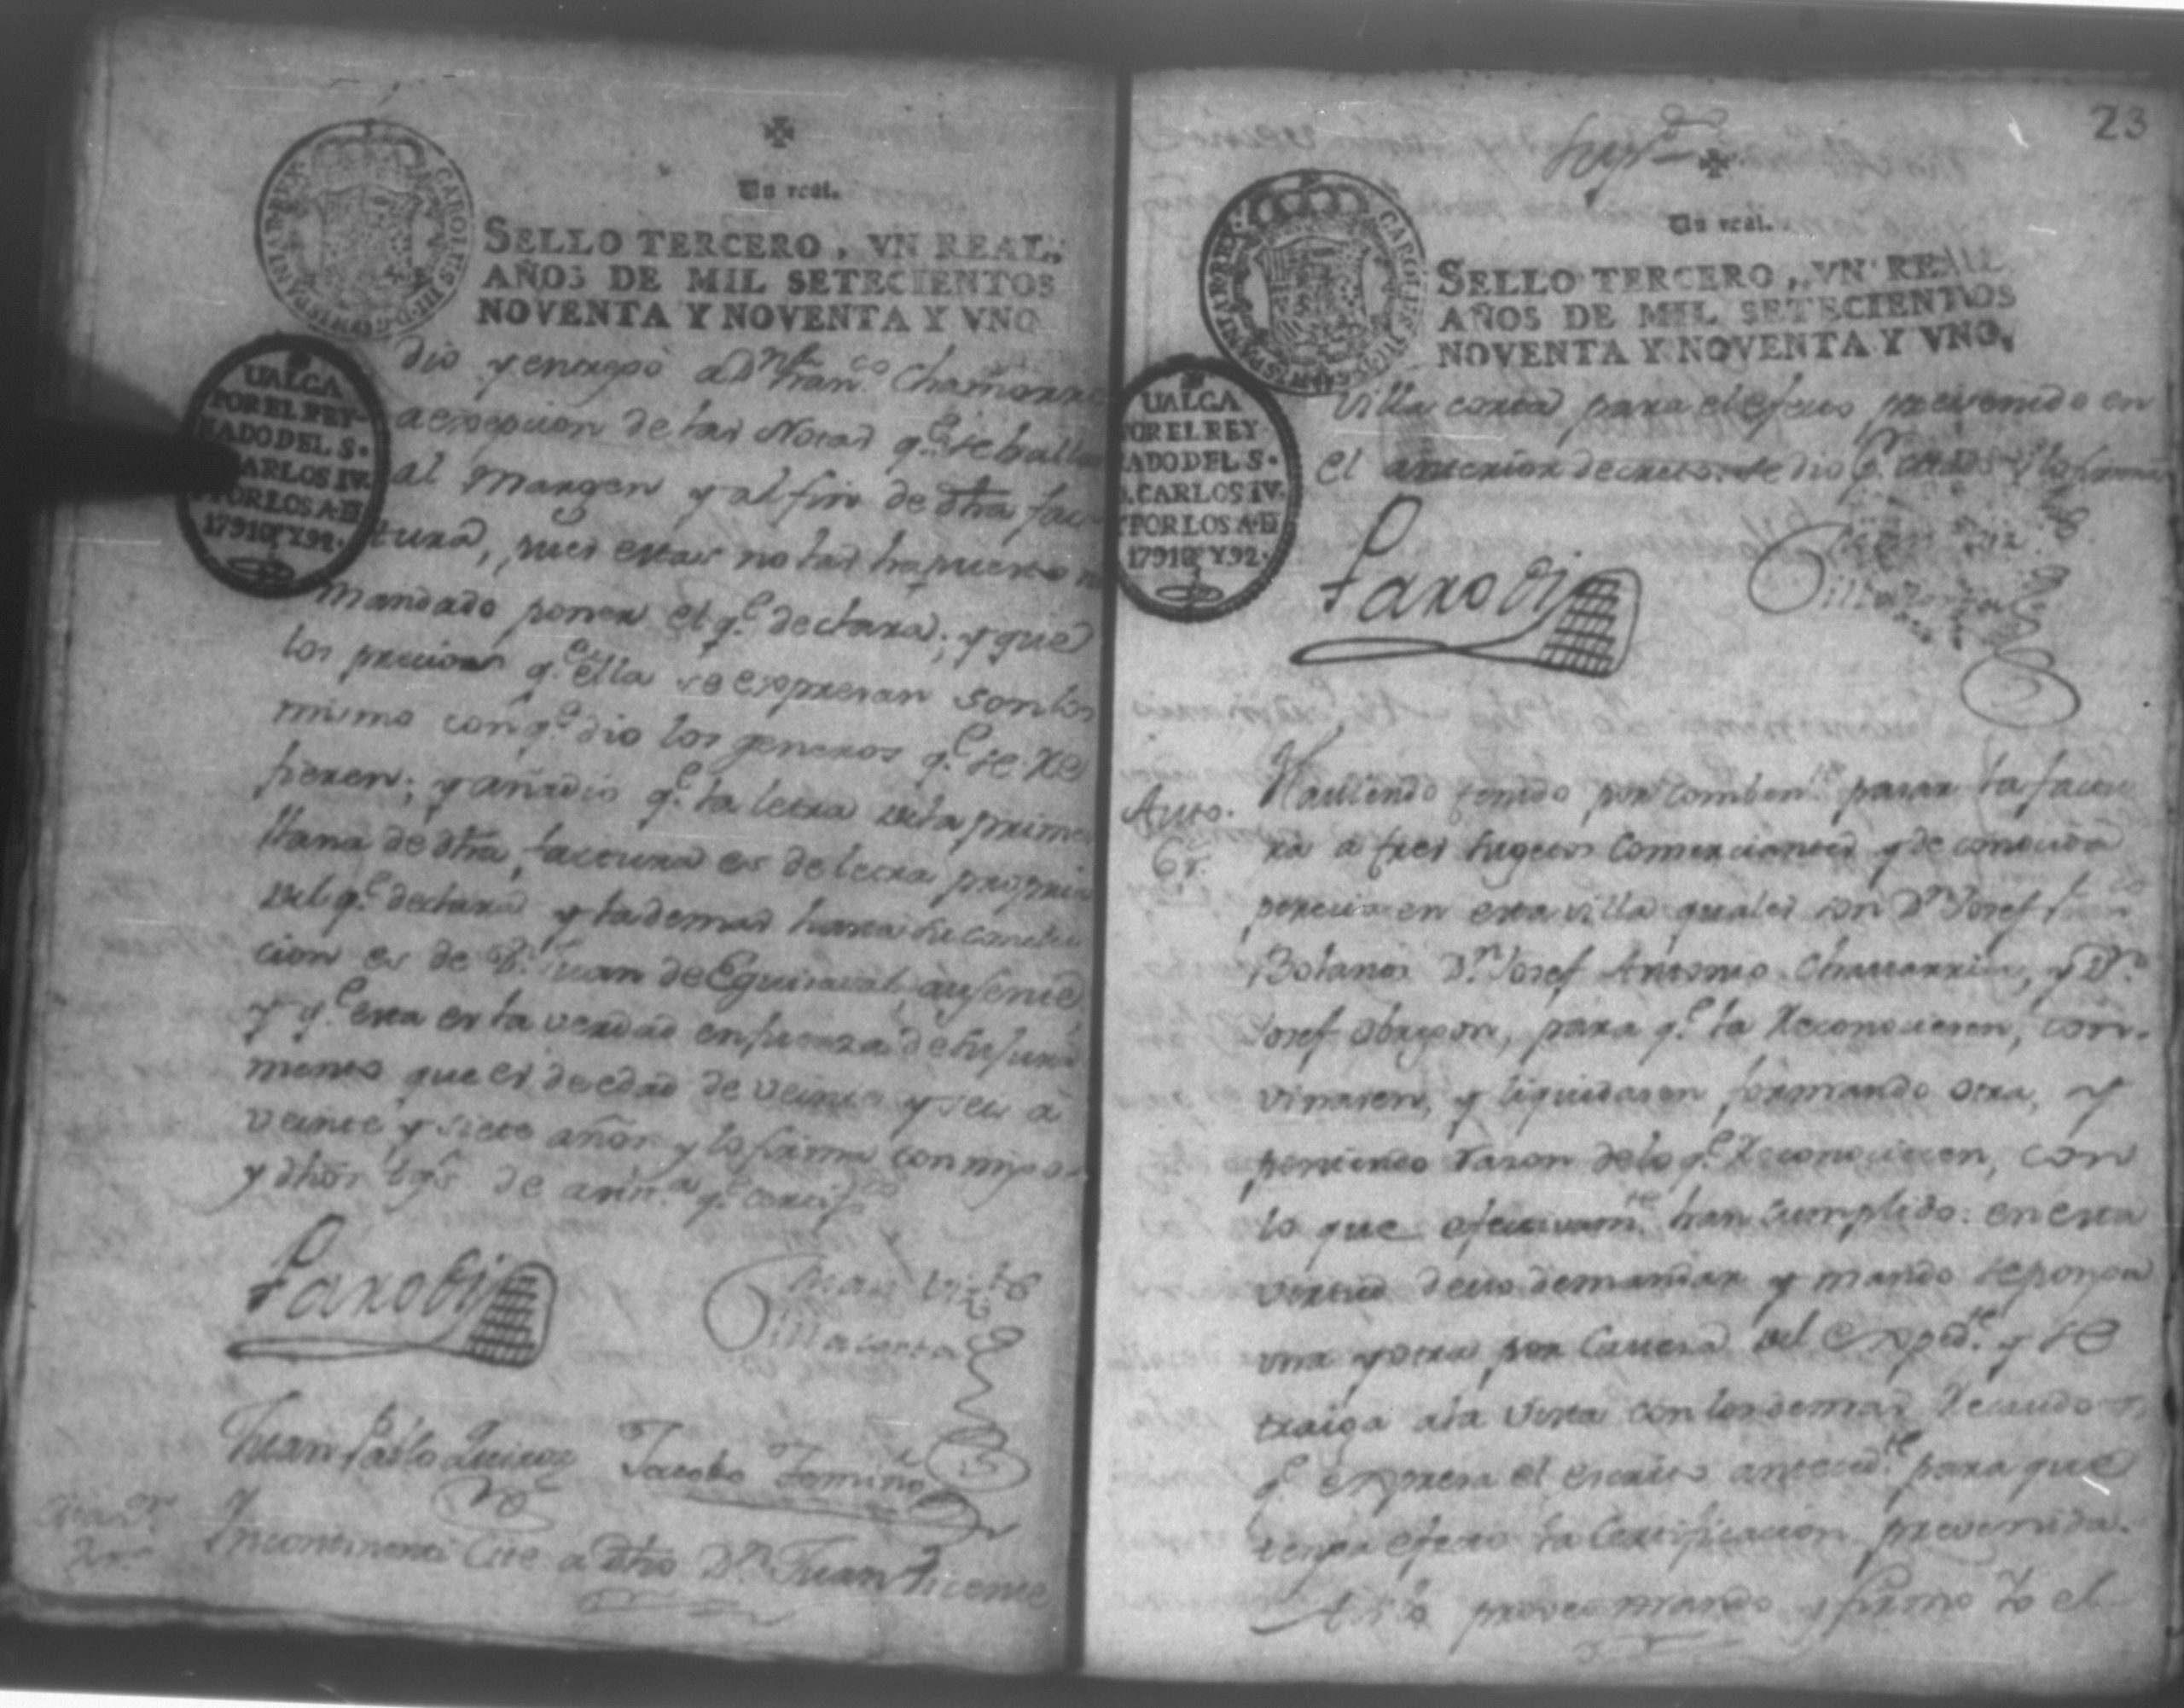 Un real.
SELLO TERCERO, VN REAL,
AÑOS DE MIL SETECIENTOS
NOVENTA Y NOVENTA Y VNO
CAROLUS III D G HISPANIAR REX
UALGA
POR EL REY-
NADO DEL S.
D. CARLOS IV.
Y POR LOS A. D
1791 Y 92.
dio y entregò a Dn Franco Chamorro
a excepcion de las Notas qe se hallan
al margen y al fin de dha fac-
tura, pues estas no las ha puesto ni
mandado poner el qe declara; y que
los precios qe ella se expresan son los
mismo con qe dio los generos qe se re
fieren; y añadio qe la letra de la prime
llana de dha factura es de letra propria
del qe declara y lademas hasta su conclu
cion es de Dn Juan de Eguisaval, ausente
y qe esta es la verdad en fuerza de su jura
mento que es de edad de veinte y seis à
veinte y siete años y lo firma conmigo
y dhos tgs de asista qe certifco
Parodi
Juan Vizte
Villacorta
Juan Pablo Quiroz
Jacobo Tomiño
Incontinenti Cite a dho Dn Juan Vicente
23
Un real.
SELLO TERCERO, VN REAL
AÑOS DE MIL SETECIENTOS
NOVENTA Y NOVENTA Y VNO,
CAROLUS III D G HISPANIAR REX
UALGA
POR EL REY
NADO DEL S.
D. CARLOS IV.
Y POR LOS A. D
1791 Y 92.
Villa corta para el efecto prevenido en
el anterior decreto. se dio pr citado y lo firmó
Parodi
Villacorta
Auto.
Haviendo tenido por combente pasar la factu
ra a tres sugetos Comerciantes y de conocida
pericia en esta villa quales son Dn Josef
Bolanos Dn Josef Antonio Chavarria, y Dn
Josef Obregon, para qe la reconociesen, com-
vinasen, y liquidasen formando otra, y
poniendo razon de lo qe reconociesen, con
lo que efectivamte han cumplido: en esta
virtud devo de mandar y mando se ponga
una y otra por Cavesa del expedte y se
traiga ala vista con los demas recaudos
qe expresa el escrito antecedte para que
tenga efecto la Certificacion prevenida.
Asi lo proveo mando y firmo Yo el